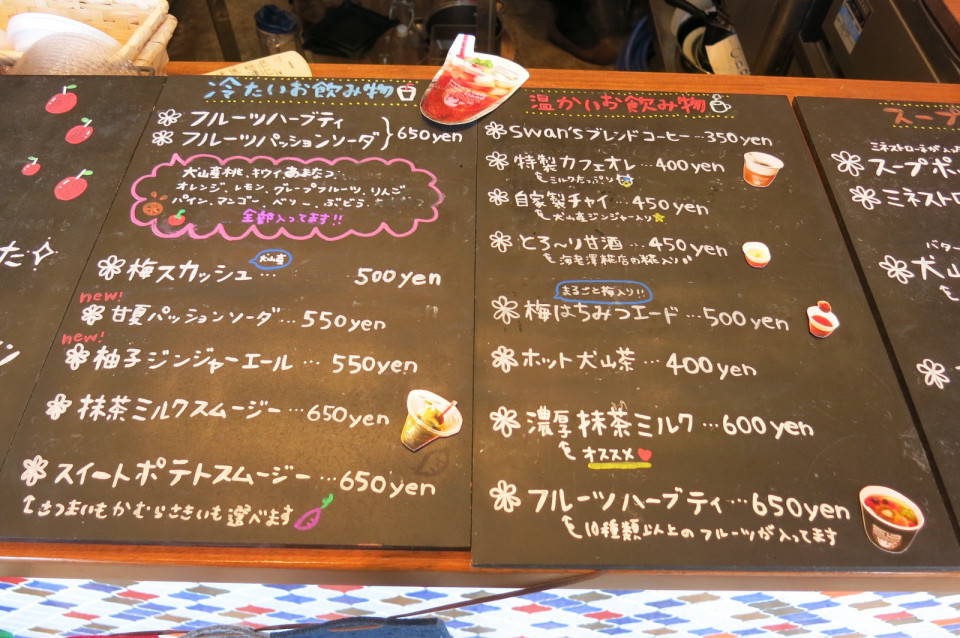 た
冷たいお飲み物
フルーツハーブティ
フルーツパッションソーダ
650yen
犬山産桃、キウイ、あまなつ、
オレンジ、レモン、グレープフルーツ、りんご
パイン、マンゴー、ベリー、ぶどう、
全部入ってます!!
犬山産
梅スカッシュ… 500yen
new!
甘夏パッションソーダ…550yen
new!
柚子ジンジャーエール…550yen
抹茶ミルクスムージー…650yen
スイートポテトスムージー…650yen
さつまいもかむらさきいも選べます
温かいお飲み物
Swan'sブレンドコーヒー…350yen
特製カフェオレ…400yen
ミルクたっぷり
自家製チャイ…450yen
犬山産ジンジャー入り
とろ〜り甘酒…450yen
海老澤糀店の糀入り
まるごと梅入り!!
梅はちみつエード…500yen
ホット犬山茶…400yen
濃厚抹茶ミルク…600yen
オススメ
フルーツハーブティ…650yen
10種類以上のフルーツが入ってます
スープ
ミネストローネが入っ
スープポッ
ミネストロ
バター
犬山